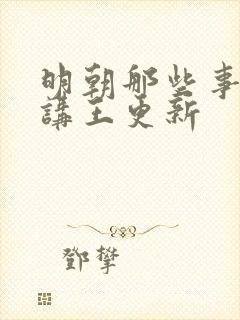 明朝那些事
講王更新
鄧攀